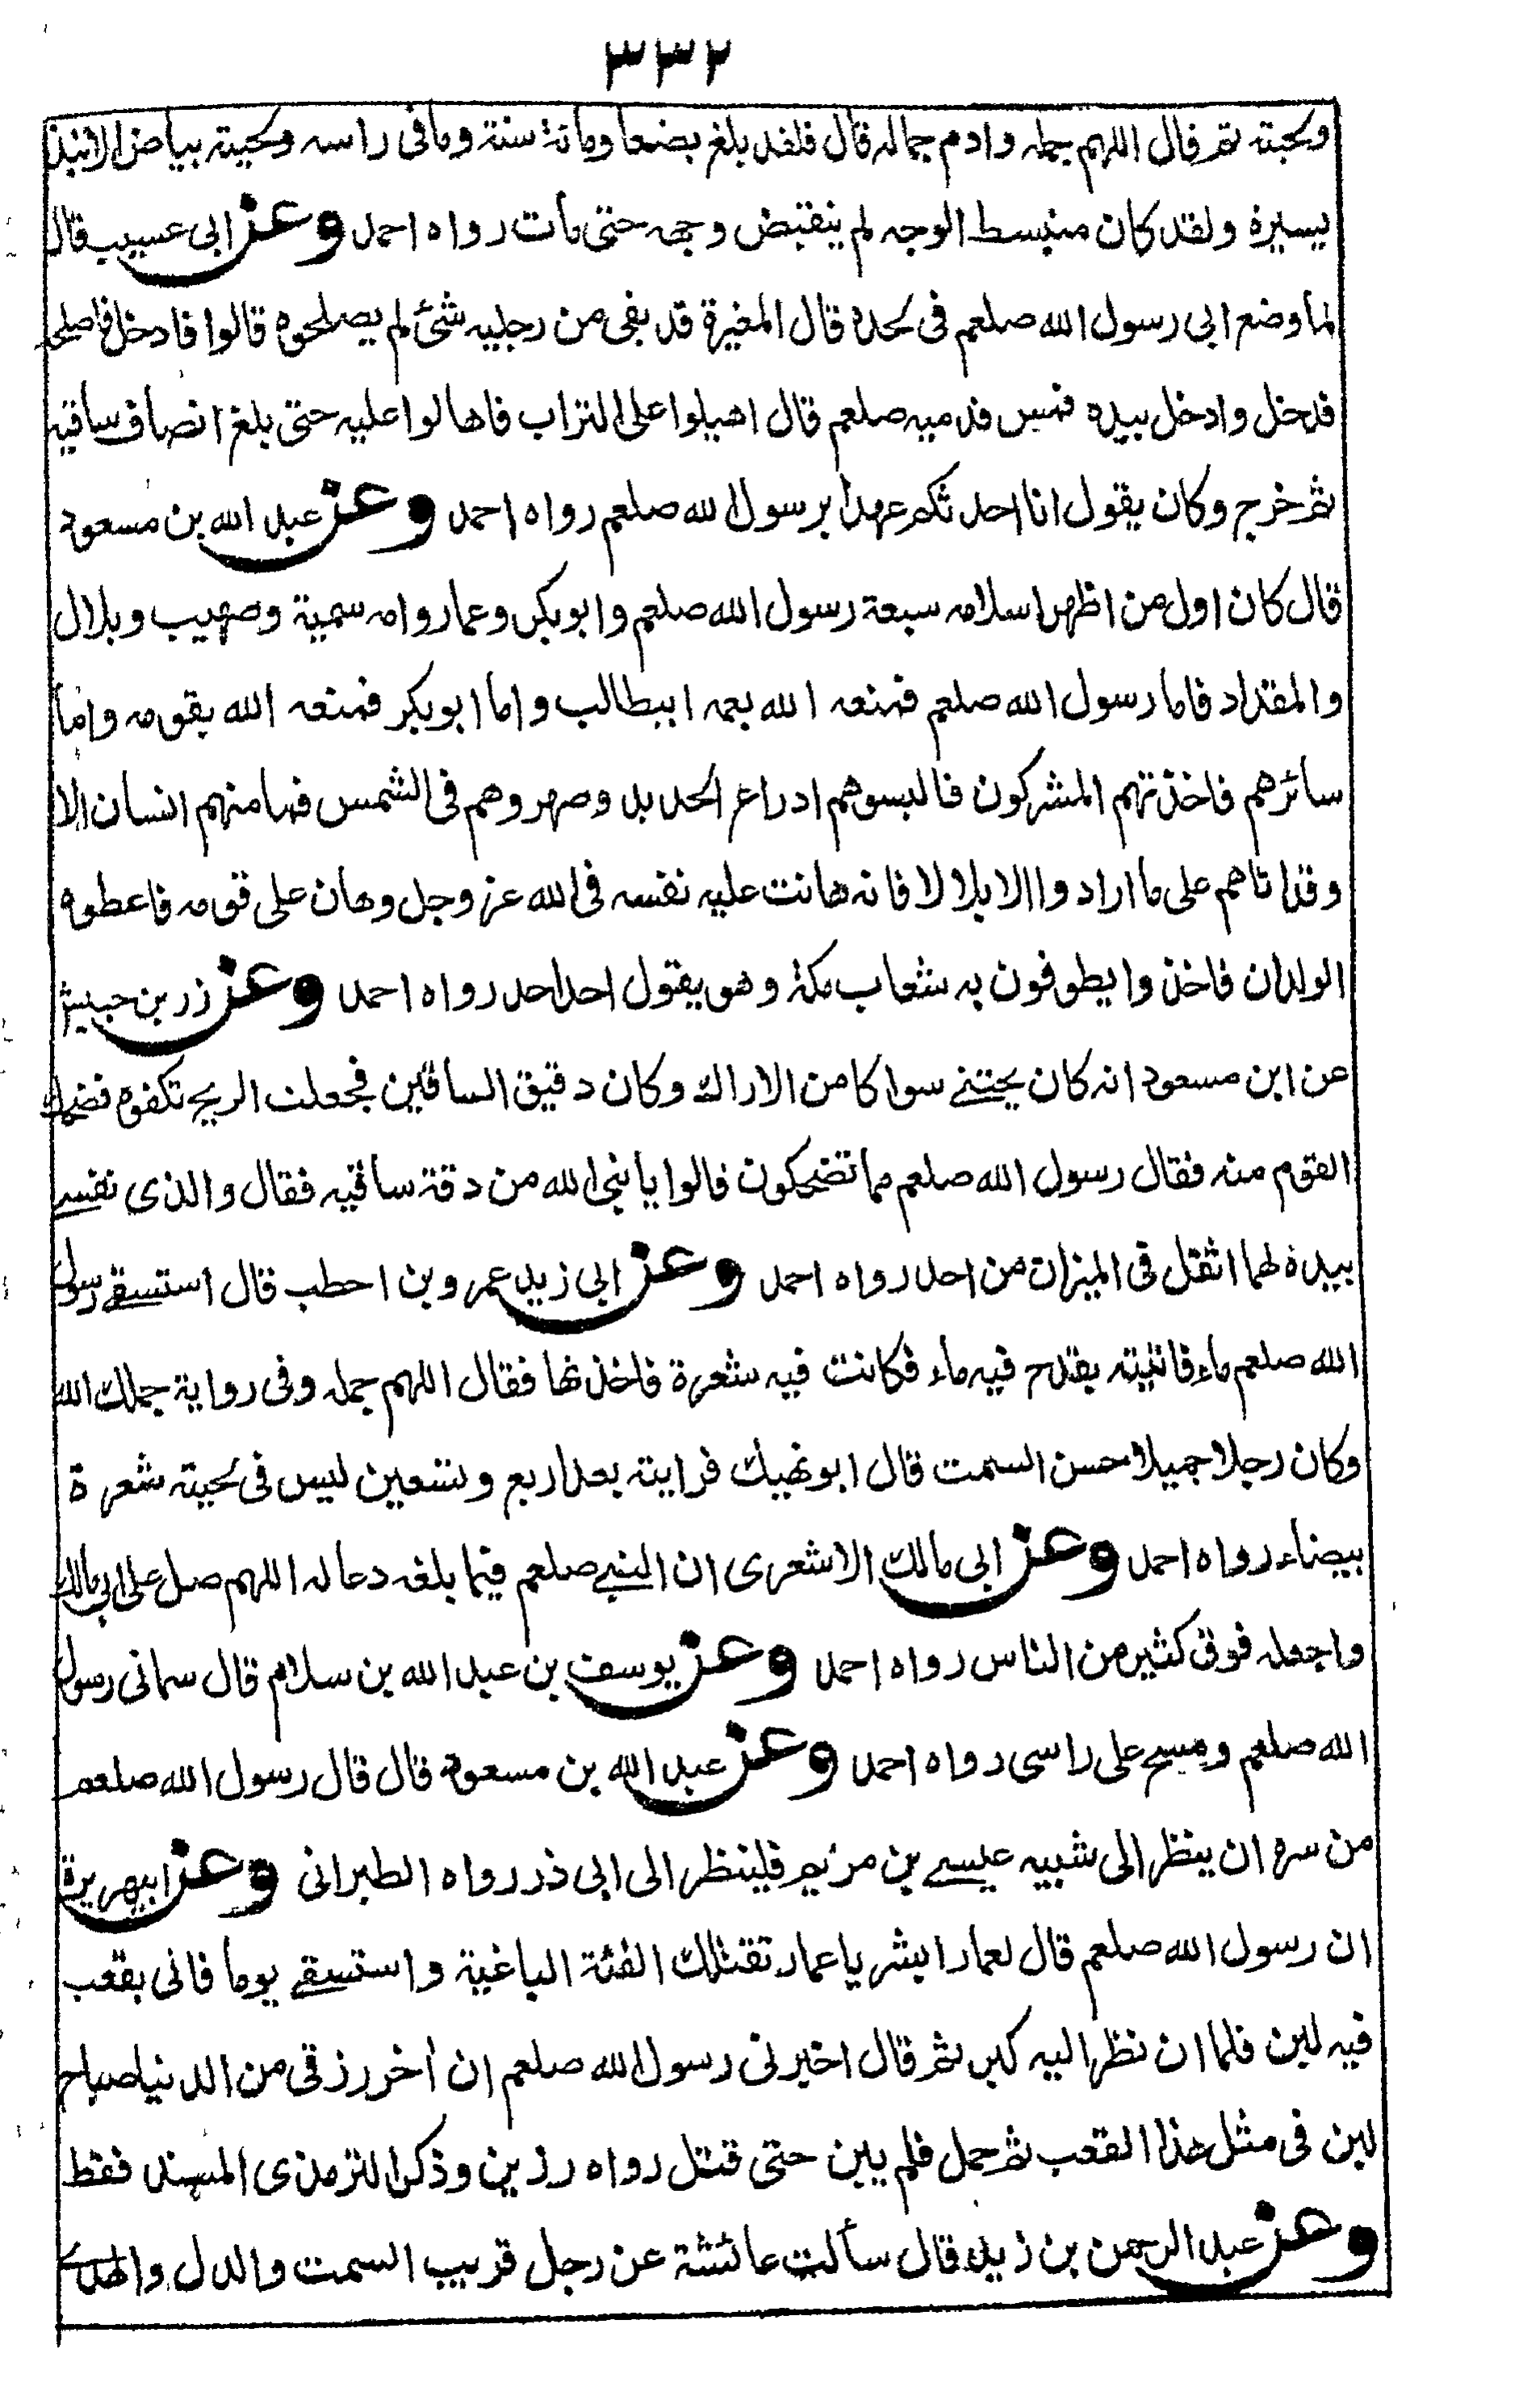 ٣٣٢
ولحيته ثم قال اللهم جمله وادم جماله قال فلقد بلغ بضعا ومائة سنة وما فى راسه ولحيته بياض الا نبذ
يسيرة ولقد كان منبسط الوجه لم ينقبض وجهه حتى مات رواه احمد وعن ابى عسيب قال
لما وضع ابى رسول الله صلعم فى لحده قال المغيرة قد بقى من رجليه شئ لم يصلحوه قالوا فادخل فاصلحه
فدخل وادخل بيده فمس قدميه صلعم قال اهيلوا على التراب فاهالوا عليه حتى بلغ انصاف ساقيه
ثم خرج وكان يقول انا احدثكم عهدا برسول الله صلعم رواه احمد وعن عبد الله بن مسعود
قال كان اول من اظهر اسلامه سبعة رسول الله صلعم وابو بكر وعمار وامه سمية وصهيب وبلال
والمقداد فاما رسول الله صلعم فمنعه الله بعمه ابيطالب واما ابو بكر فمنعه الله بقومه واما
سائرهم فاخذتهم المشركون فالبسوهم ادراع الحديد وصهروهم فى الشمس فما منهم انسان الا
وقد اتاهم على ما ارادوا الا بلالا فانه هانت عليه نفسه فى الله عز وجل وهان على قومه فاعطوه
الولدان فاخذوا يطوفون به شعاب مكة وهو يقول احد احد رواه احمد وعن زر بن حبيش
عن ابن مسعود انه كان يجتنے سواكا من الاراك وكان دقيق الساقين فجعلت الريح تكفوه فضحك
القوم منه فقال رسول الله صلعم مما تضحكون قالوا يا نبى الله من دقة ساقيه فقال والذى نفسے
بيده لهما اثقل فى الميزان من احد رواه احمد وعن ابى زيد عمرو بن احطب قال استسقے رسول
الله صلعم ماء فاتيته بقدح فيه ماء فكانت فيه شعرة فاخذتها فقال اللهم جمله وفى رواية جملك الله
وكان رجلا جميلا حسن السمت قال ابو نهيك فرايته بعد اربع وتسعين ليس فى لحيته شعرة
بيضاء رواه احمد وعن ابى مالك الاشعرى ان النبے صلعم فيما بلغه دعا له اللهم صل على ابى مالك
واجعله فوق كثير من الناس رواه احمد وعن يوسف بن عبد الله بن سلام قال سمانى رسول
الله صلعم ومسح على راسى رواه احمد وعن عبد الله بن مسعود قال قال رسول الله صلعم
من سره ان ينظر الى شبيه عيسے بن مريم فلينظر الى ابى ذر رواه الطبرانى وعن ابيهريرة
ان رسول الله صلعم قال لعمار ابشر يا عمار تقتلك الفئة الباغية واستسقے يوما فاتى بقعب
فيه لبن فلما ان نظر اليه كبر ثم قال اخبرنى رسول الله صلعم ان اخر رزقى من الدنيا صباح
لبن فى مثل هذا القعب ثم حمل فلم يبن حتى قتل رواه رزين وذكر الترمذى المسند فقط
وعن عبد الرحمن بن زيد قال سألت عائشة عن رجل قريب السمت والدل والهدے